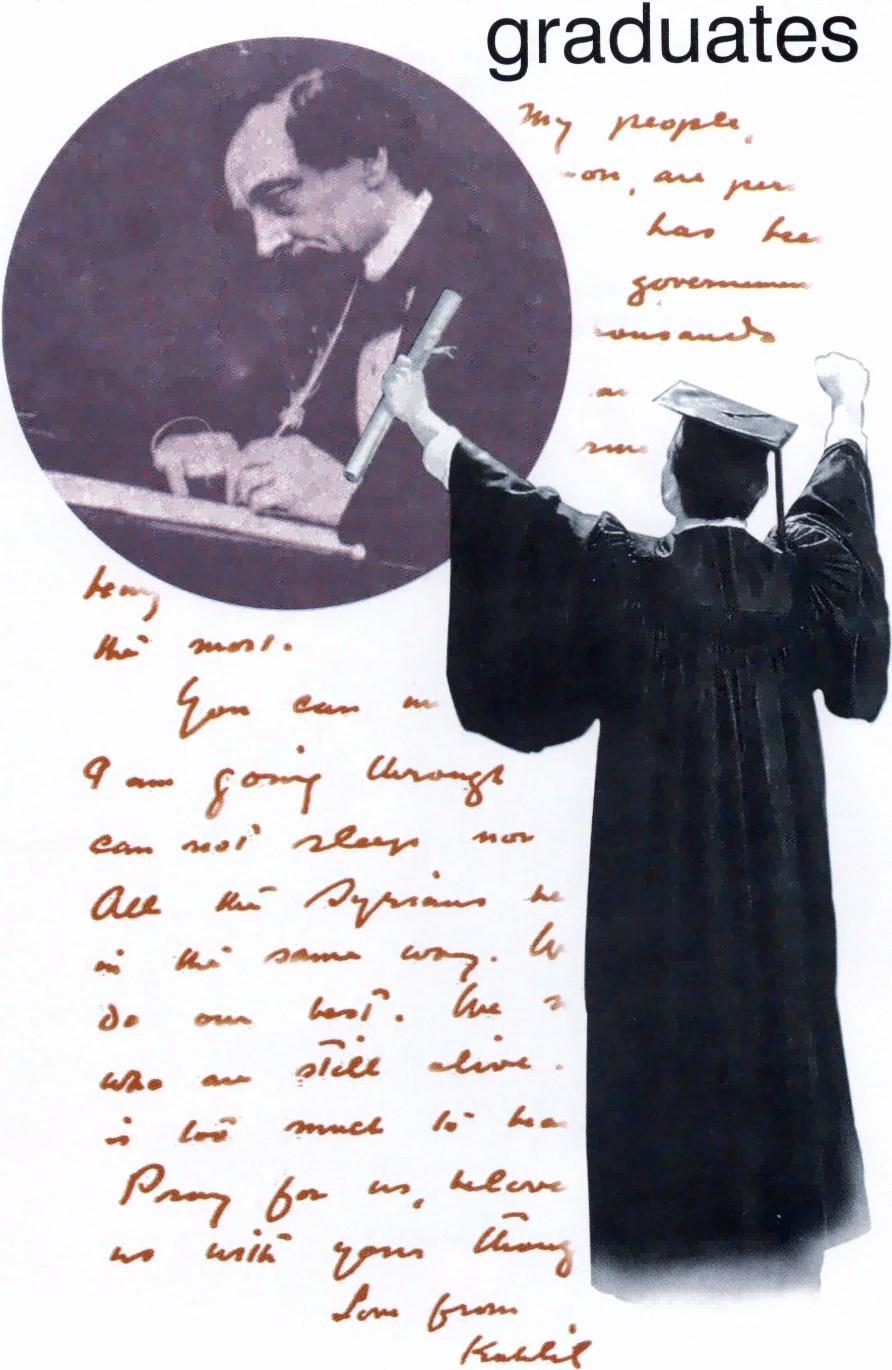 graduates
My people,
on, are per
has bee
governmen
ousands
a
being
the most.
You can
I am going through
can not sleep nor
All the Syrians he
in the same way. W
do our best. We
who are still alive.
is too much to bea
Pray for us, belove
us with your thoug
Love from
Kahlil